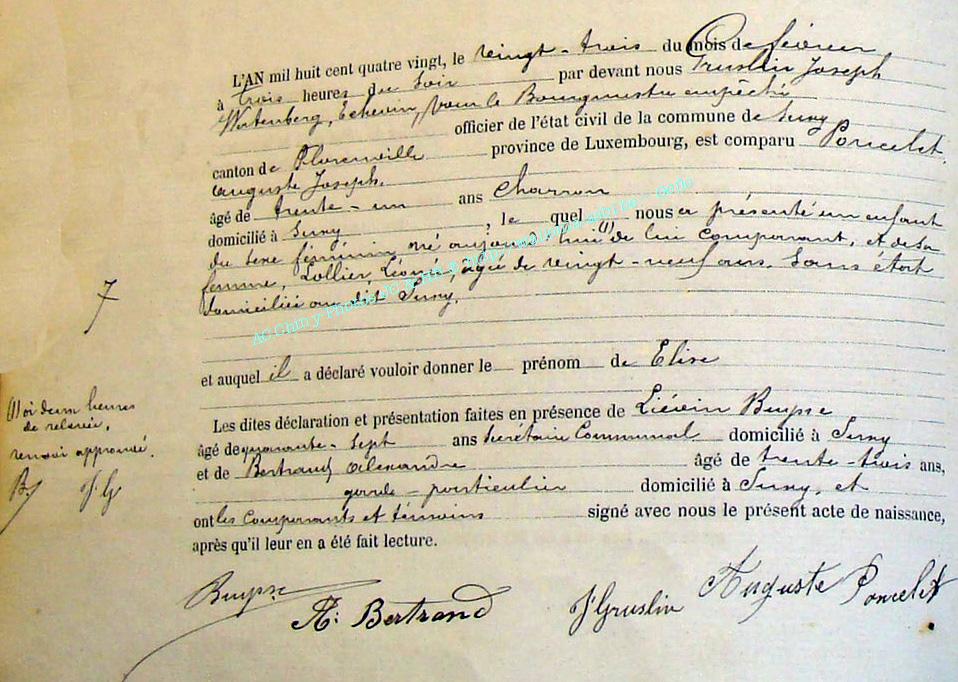 L'AN mil huit cent quatre vingt, le vingt-trois du mois de février
à trois heures du soir par devant nous Gruslin Joseph
Wertenberg, Echevin, pour le Bourgmestre empêché
officier de l'état civil de la commune de Suxy
canton de Florenville province de Luxembourg, est comparu Poncelet
Auguste Joseph,
âgé de trente-un ans Charron
domicilié à Suxy, le quel nous a présenté un enfant
du sexe féminin né aujourd'hui (1) de lui comparant, et de sa
femme, Lollier, agée de vingt-neuf ans, Sans état
domiciliée au dit Suxy.
7
et auquel il a déclaré vouloir donner le prénom de Elise
Les dites déclaration et présentation faites en présence de Liévin Buysse
âgé de quarante-sept ans Secrétaire Communal domicilié à Suxy
et de Bertrand Alexandre âgé de trente-trois ans,
garde-particulier domicilié à Suxy, et
ont les Comparants et témoins signé avec nous le présent acte de naissance,
après qu'il leur en a été fait lecture.
(1) à deux heures
de relevée,
renvoi approuvé.
B J G
Buysse
A. Bertrand
J Gruslin
Auguste Poncelet
AC Chiny Photos